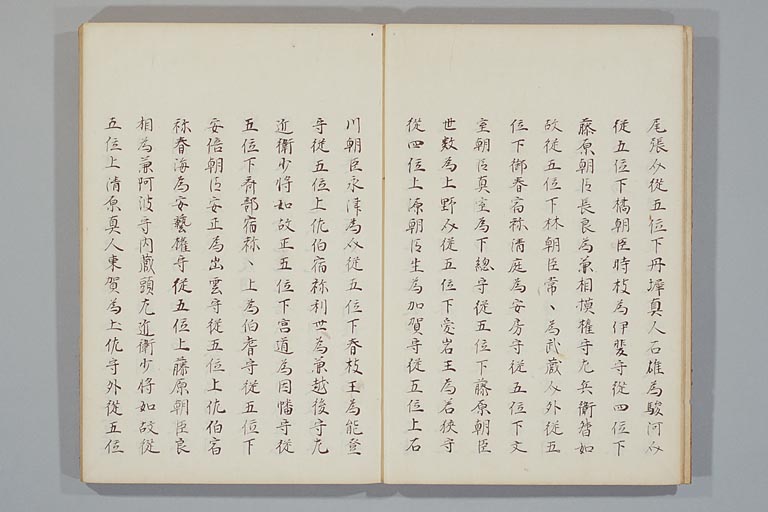 尾張介従五位下丹墀真人石雄為駿河介
従五位下橘朝臣時枝為伊㔟守従四位下
藤原朝臣長良為兼相模權守左兵衛督如
故従五位下林朝臣常〻為武蔵介外従五
位下御春宿祢清庭為安房守従五位下文
室朝臣真室為下總守従五位下藤原朝臣
世数為上野介従五位下愛岩王為若狭守
従四位上源朝臣生為加賀守従五位上石
川朝臣永津為介従五位下春枝王為能登
守従五位上佐伯宿祢利世為兼越後守左
近衛少将如故正五位下宮道為因幡守従
五位下斎部宿祢〻上為伯耆守従五位下
安倍朝臣安正為出雲守従五位上佐伯宿
祢春海為安藝權守従五位上藤原朝臣良
相為兼阿波守内蔵頭左近衛少将如故従
五位上清原真人東賀為土佐守外従五位